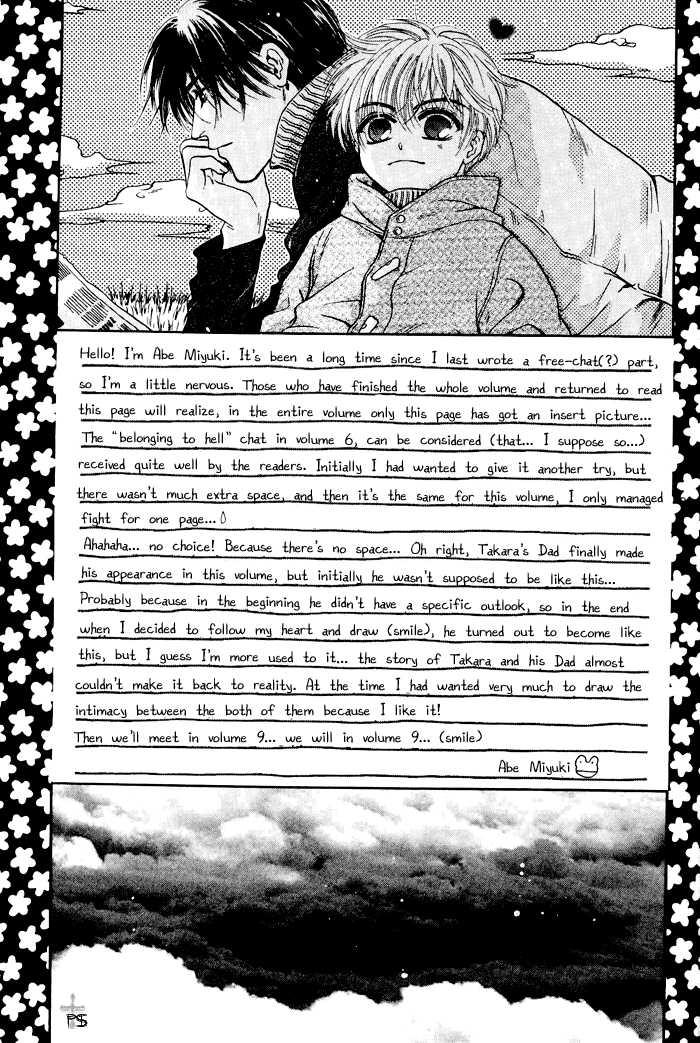 Hello! I'm Abe Miyuki. It's been a long time since I last wrote a free-chat(?) part,
so I'm a little nervous. Those who have finished the whole volume and returned to read
this page will realize, in the entire volume only this page has got an insert picture...
The "belonging to hell" chat in volume 6, can be considered (that... I suppose so...)
received quite well by the readers. Initially I had wanted to give it another try, but
there wasn't much extra space, and then it's the same for this volume, I only managed
fight for one page...
Ahahaha... no choice! Because there's no space... Oh right, Takara's Dad finally made
his appearance in this volume, but initially he wasn't supposed to be like this...
Probably because in the beginning he didn't have a specific outlook, so in the end
when I decided to follow my heart and draw (smile), he turned out to become like
this, but I guess I'm more used to it... the story of Takara and his Dad almost
couldn't make it back to reality. At the time I had wanted very much to draw the
intimacy between the both of them because I like it!
Then we'll meet in volume 9... we will in volume 9... (smile)
Abe Miyuki
PS